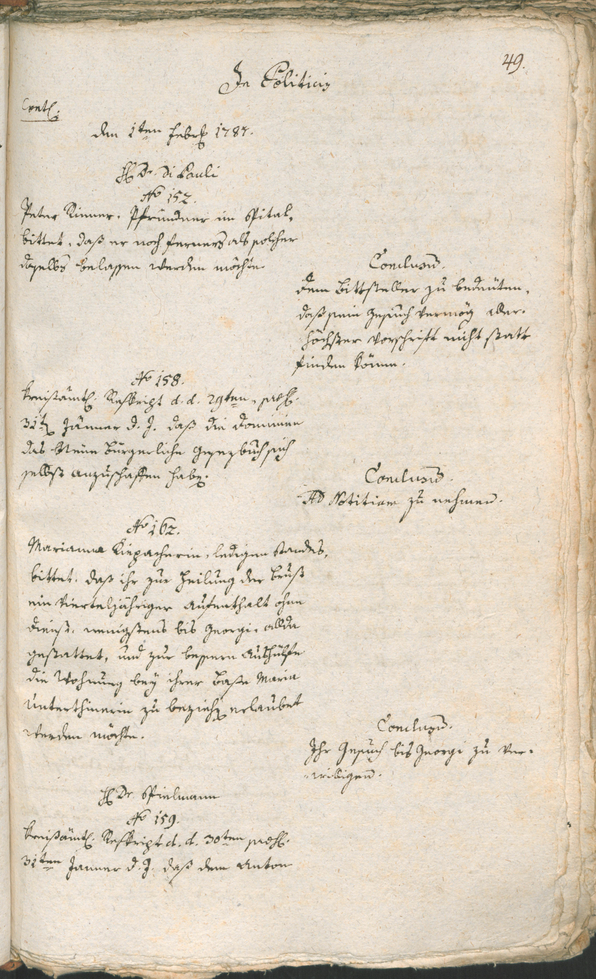 49.
In Politicis
den 1ten Febr. 1787.
H. Dr. Di Pauli
No 152.
Peter Rinner. Pfründner im Spital,
bittet, daß er noch ferners als solcher
daselbs belassen werden möchte.
Conclusum.
dem Bittsteller zu bedeuten,
daß sein Gesuch vermög aller-
höchster Vorschrift nicht statt
finden könne.
No 158.
Kreisämtl. Reskript d. d. 29ten, praes.
31t. Jänner d. J. daß die Dominien
das Neue Bürgerliche Gesezbuch sich
selbst anzuschaffen habe.
Conclusum.
Ad Notitiam zu nehmen.
No 162.
Marianna, ledigen Standes,
bittet, daß ihr zur Heilung der Brust
ein Vierteljähriger Aufenthalt ohne
Dienst, wenigstens bis Georgi allda
gestattet, und zur bessern Aushülfe
die Wohnung bey ihrer Baase Maria
Unterthinerin zu beziehen erlaubet
werden möchte.
Conclusum.
Ihr Gesuch bis Georgi zu ver-
willigen.
H. Dr. Spielmann
No 159.
Kreisämtl. Reskript d. d. 30ten praes.
31ten Jänner d. J. daß dem Anton